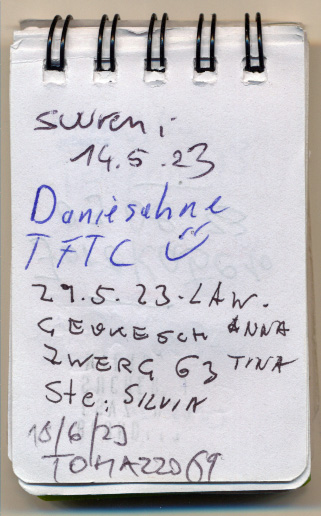 suvremi
14.5.23
Daniesahne
TFTC
29.5.23.LAW.
GEOKESCH ANNA
ZWERG 63 TINA
Ste. SILVIA
18/6/23
TOMAZZO69